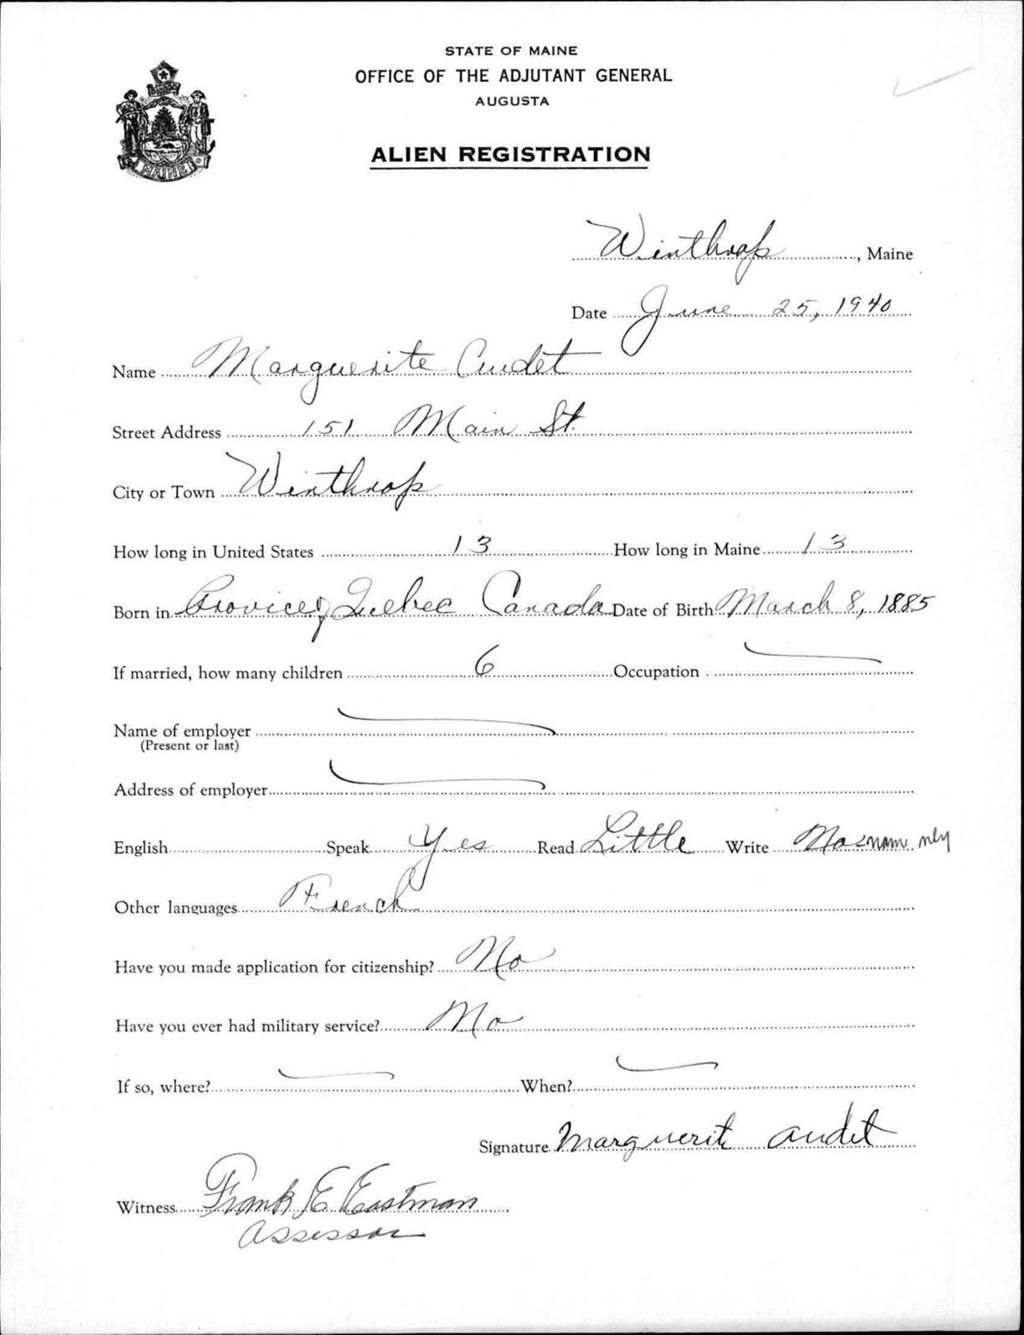 STATE OF MAINE
OFFICE OF THE ADJUTANT GENERAL
AUGUSTA
ALIEN REGISTRATION
MAINE
Winthrop, Maine
Date June 25, 1940
Name Marguerite Audet
Street Address 151 Main St.
City or Town Winthrop
How long in United States 13 How long in Maine 13
Born in Provice of Quebec Canada Date of Birth March 8, 1885
If married, how many children 6 Occupation
Name of employer
(Present or last)
Address of employer
English Speak Yes Read Little Write No name nly
Other languages French
Have you made application for citizenship? No
Have you ever had military service? No
If so, where? When?
Signature Marguerite Audet
Witness Frank E Eastman
Assessor